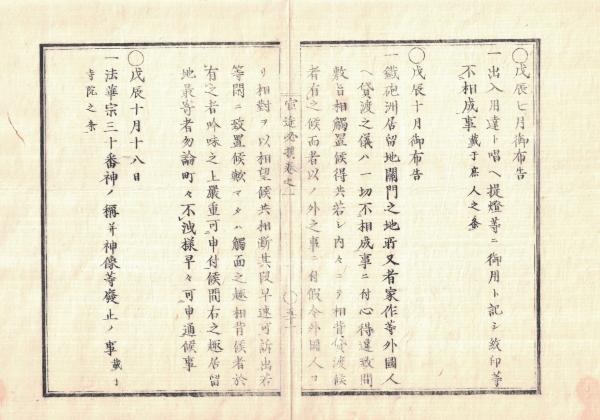 ◯戊辰七月御布告
一出入用達ト唱ヘ提燈等ニ御用ト記シ紋印等
不相成事 載于庶人之叅
◯戊辰十月御布告
一鐵砲洲居留地關門之地所又者家作等外國人
ヘ貸渡之儀ハ一切不相成事ニ付心得違致間
敷旨相觸置候得共若シ内々ニテ相背貸渡候
者有之候而者以ノ外之事ニ付假令外國人ヨ
官途必携巻之一
◯五十一
リ相對ヲ以相望候共相斷其段早速可訴出若
等閑ニ致置候歟マタハ觸面之趣相背候者於
有之者吟味之上嚴重可申付候間右之趣居留
地最寄者勿論町々不洩様早々可申通候事
◯戊辰十月十八日
一法華宗三十番神ノ稱并神像等廢止ノ事 載于
寺院之条